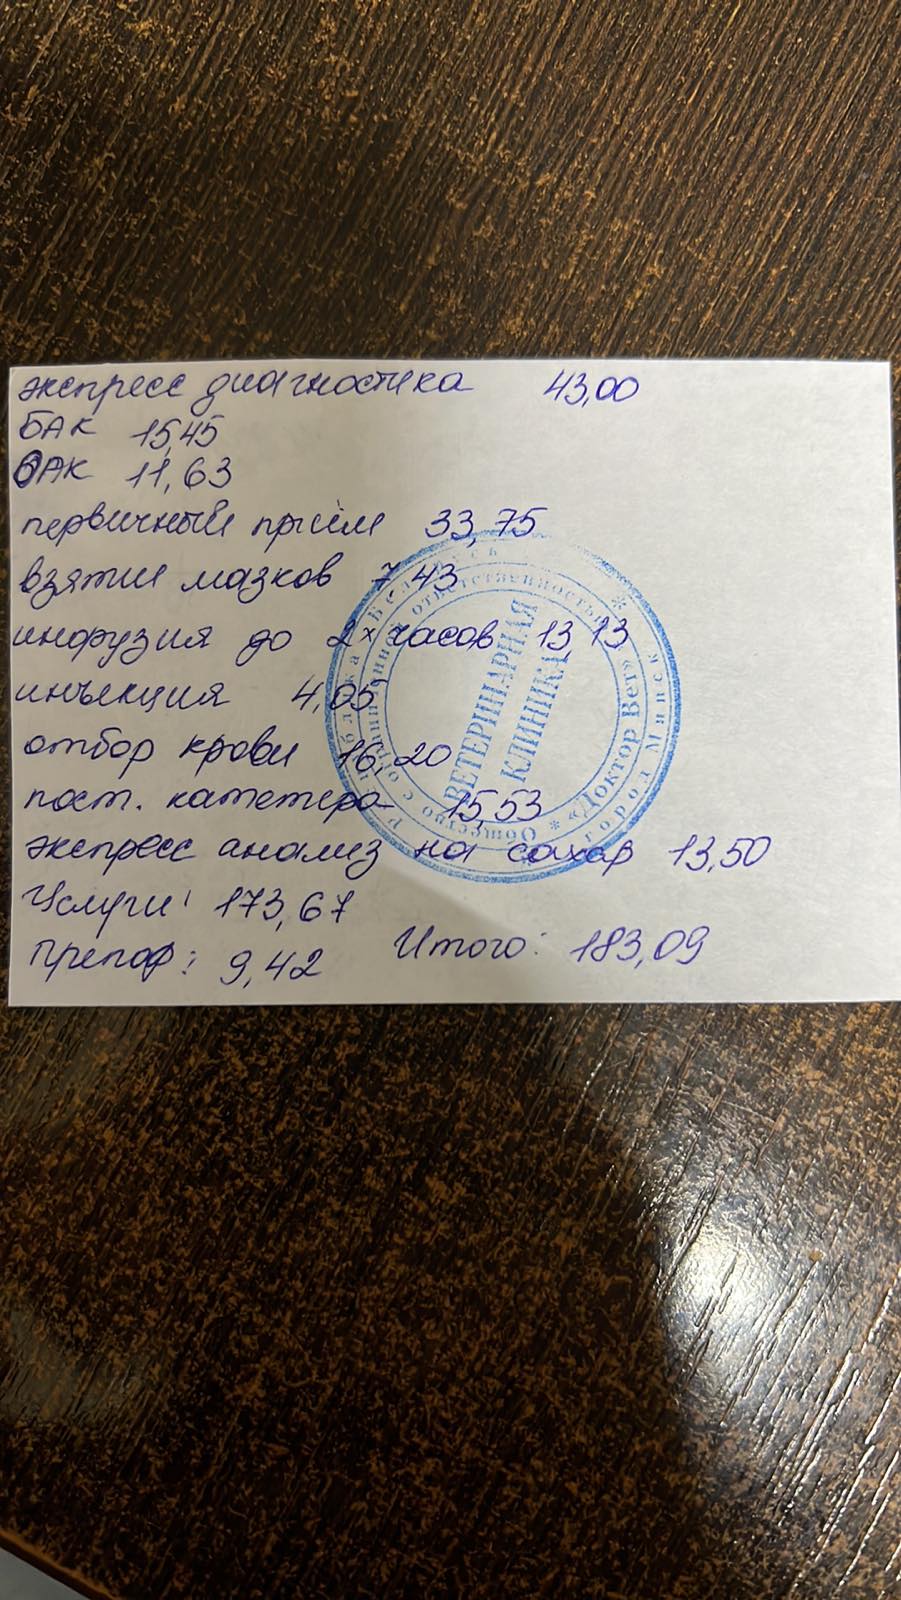 экспресс диагностика 43,00
БАК 15,45
ОАК 11,63
первичный приём 33,75
взятие мазков 7,43
инфузия до 2х часов 13,13
инъекция 4,05
отбор крови 16,20
пост. катетера 15,53
экспресс анализ на сахар 13,50
Услуги: 173,67
Препар: 9,42 Итого: 183,09
Республика Беларусь * город Минск *
Общество с ограниченной ответственностью * «Доктор Вет»
ВЕТЕРИНАРНАЯ
КЛИНИКА